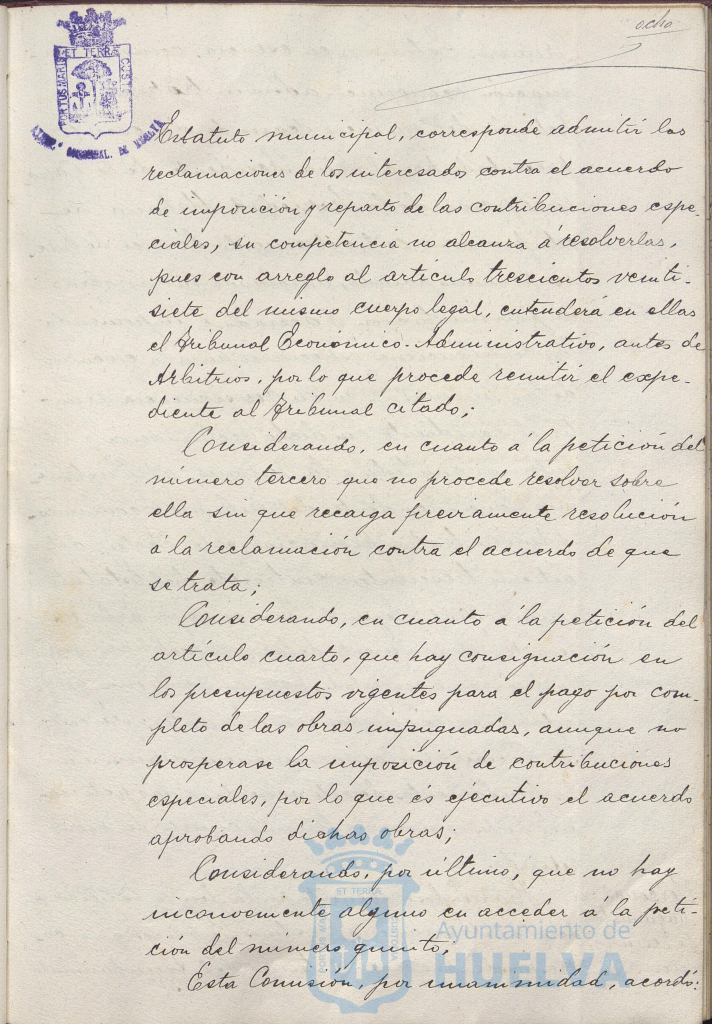 ocho
PORTUS MARIS ET TERRÆ CUSTODIA
Estatuto municipal, corresponde admitir las
reclamaciones de los interesados contra el acuerdo
de imposición y reparto de las contribuciones espe-
ciales, su competencia no alcanza á resolverlas,
pues con arreglo al artículo trescientos veinti-
siete del mismo cuerpo legal, entenderá en ellas
el Tribunal Económico-Administrativo, antes de
Arbitrios, por lo que procede remitir el expe-
diente al Tribunal citado;
Considerando, en cuanto á la petición del
número tercero que no procede resolver sobre
ella sin que recaiga previamente resolución
á la reclamación contra el acuerdo de que
se trata;
Considerando, en cuanto á la petición del
artículo cuarto, que hay consignación en
los presupuestos vigentes para el pago por com-
pleto de las obras impugnadas, aunque no
prosperase la imposición de contribuciones
especiales, por lo que és ejecutivo el acuerdo
aprobando dichas obras;
Considerando, por último, que no hay
inconveniente alguno en acceder á la peti-
ción del número quinto;
Esta Comisión, por unanimidad, acordó:
Ayuntamiento de
HUELVA